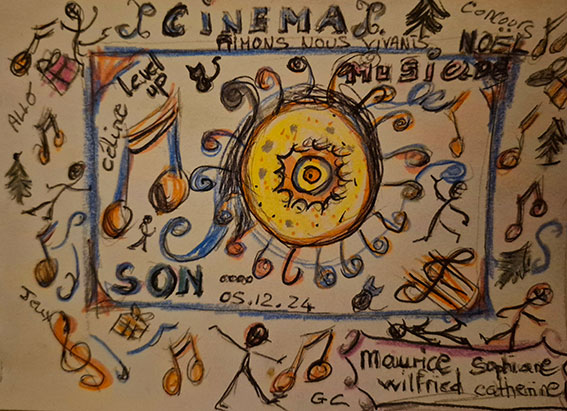 CINEMA
AIMONS NOUS VIVANTS
CONCOURS
NOËL
MUSIQUE
ALLO
céline level up
SON ....
05.12.24
Jeux
Maurice Sophiane
Wilfried catherine
GC